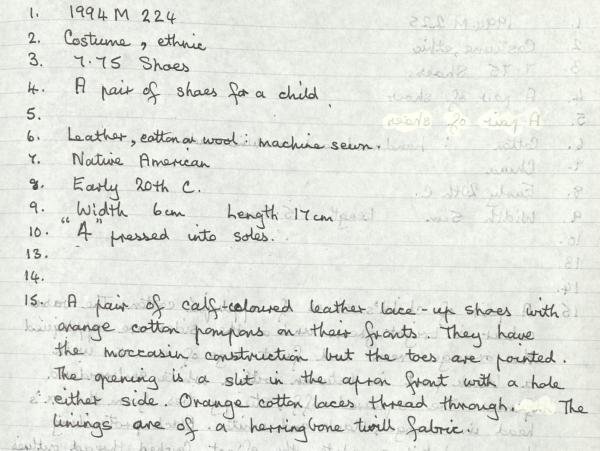 1. 1994 M 224
2. Costume, ethnic
3. 7.75 Shoes
4. A pair of shoes for a child.
5.
6. Leather, cotton or wool: machine sewn.
7. Native American
8. Early 20th C.
9. Width 6cm Length 17cm
10. "4" pressed into soles.
13.
14.
15. A pair of calf-coloured leather lace-up shoes with
orange cotton pompons on their fronts. They have
the moccasin construction but the toes are pointed.
The opening is a slit in the apron front with a hole
either side. Orange cotton laces thread through. The
linings are of a herringbone twill fabric.